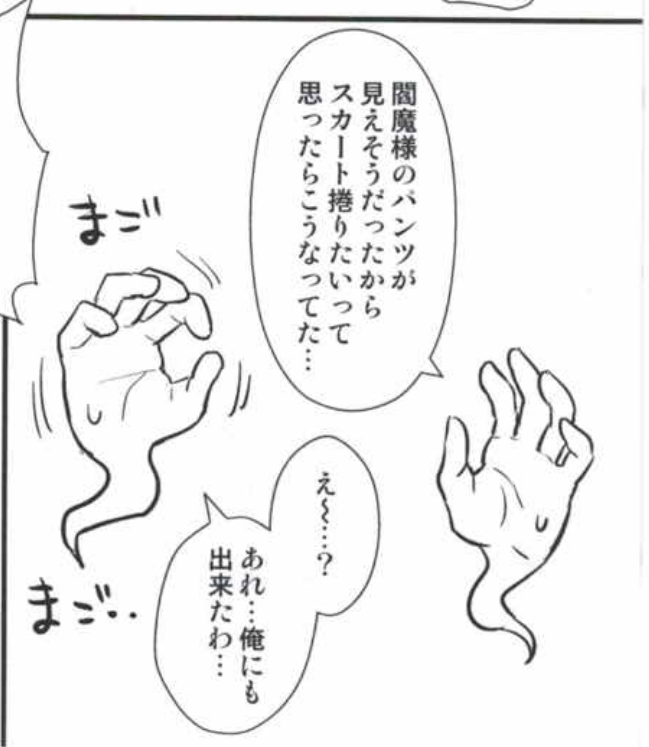 閻魔様のパンツが
見えそうだったから
スカート捲りたいって
思ったらこうなってた…
え〜…?
あれ…俺にも
出来たわ…
まご゛
まご゛‥